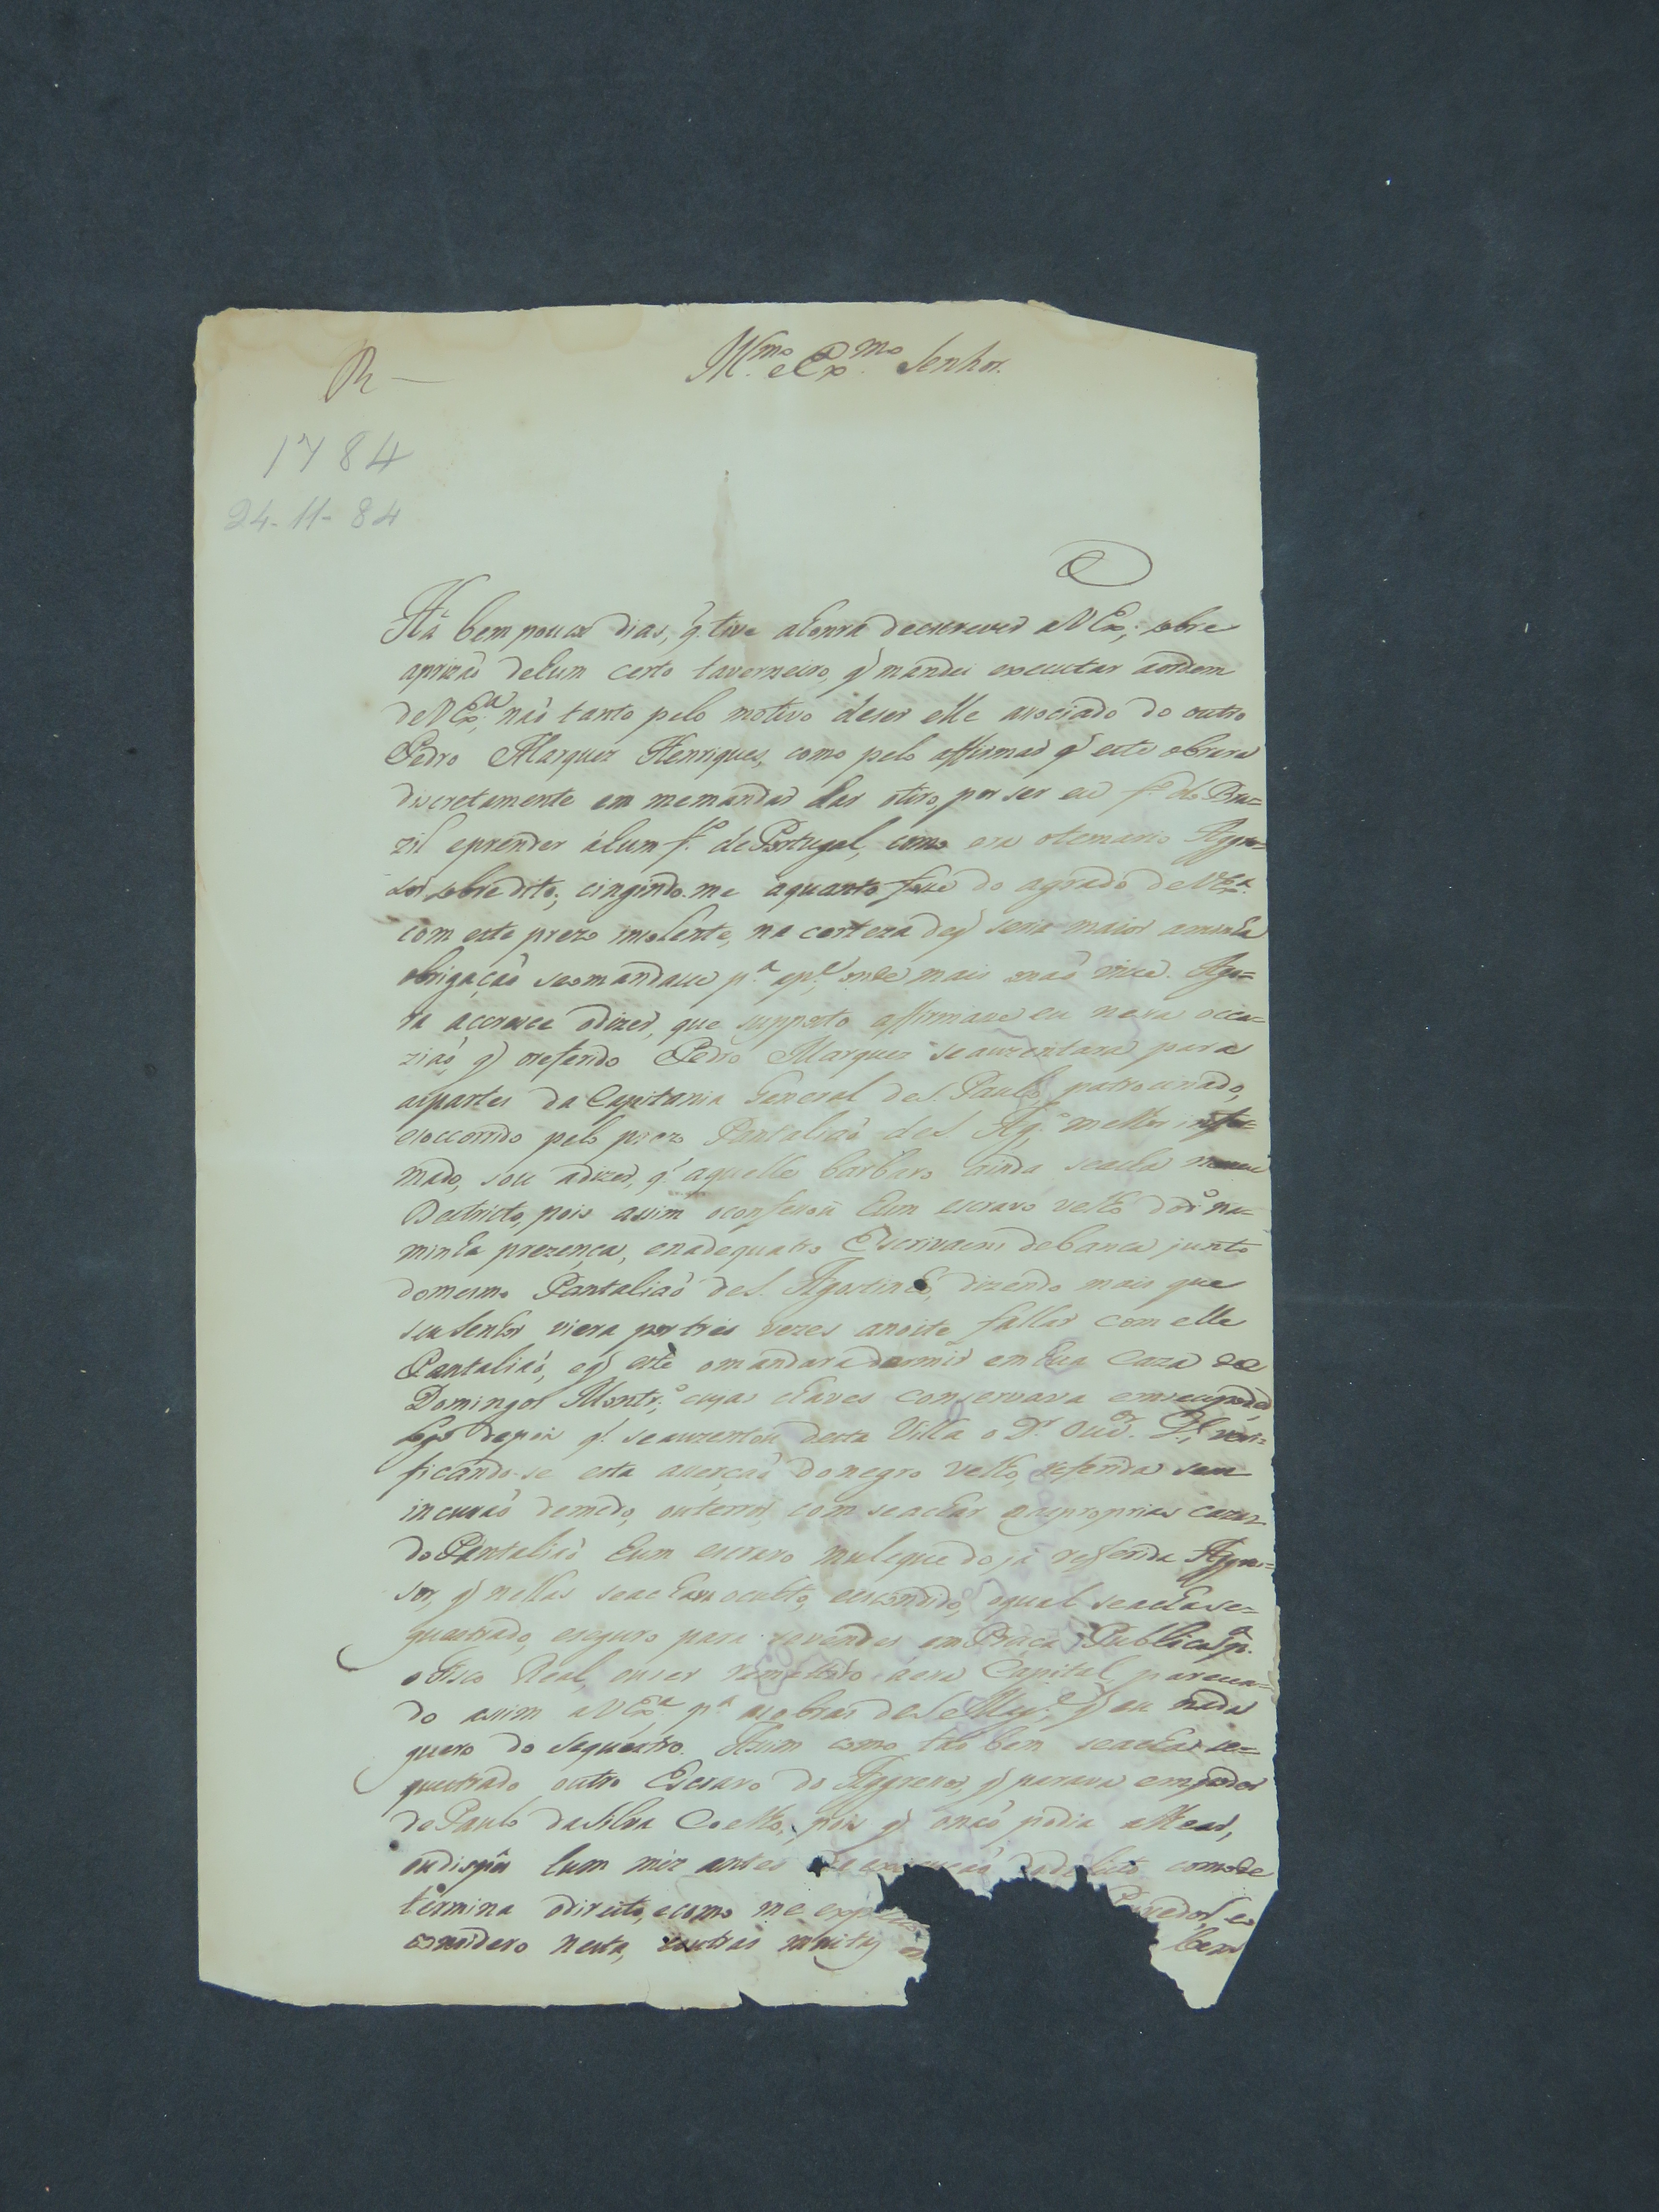 R —
Ill.mo e Ex.mo Senhor.
1784
24-11-84
Há bem poucos dias, q̃ tive a honra de escrever a V Ex.ª; sobre
a prizaõ de hum certo taverneiro, q̃ mandei executar a ordem
de V Ex.ª; naõ tanto pelo motivo de ser elle asociado do outro
Pedro Marquez Henriques, como pelo affirmar q̃ este obrara
discretamente em me mandar dar o tiro, por ser eu f.º do Bra=
zil e prender á hum f.º de Portugal, como era o temario Aggre=
sor sobredito; cingindo-me a quanto fosse do agrado de V Ex.ª
com este prezo insolente, na certeza de q̃ seria maior a minha
obrigaçaõ se o mandasse p.ª p.te onde mais o naõ visse. Ago=
ra accresce o dizer, que supposto affirmasse eu nessa occa=
ziaõ, q̃ o referido Pedro Marquez se auzentara para
as partes da Capitania General de S. Paulo, patrocinado,
e soccorrido pelo prezo Pantaliaõ de S. Ag.º melhor infor=
mado, sou a dizer, q̃ aquelle barbaro ainda se acha nesse
Destricto, pois assim o confessou hum escravo velho do d.º na
minha prezença, e na de quatro Escrivaens de banca junto
do mesmo Pantaliaõ de S. Agostinho, dizendo mais que
seu Senhor viera por tres vezes a noite fallar com elle
Pantaliaõ, e q̃ este o mandara dormir em hua Caza de
Domingos Montr.º; cujas chaves conservava em seu poder,
logo depois q̃ se auzentou desta Villa o D.r Ouv.or G.l; veri=
ficando-se esta aserçaõ do negro velho, referida sem
incursaõ de medo, ou terror, com se achar nas proprias cazas
do Pantaliaõ hum escravo muleque do já refferido Aggres=
sor, q̃ nellas se achava oculto, e escondido, o qual se acha se=
questrado, e seguro para se vender em Praça Publica p.ª
o Fisco Real, ou ser remettido á essa Capital parecen=
do assim a V Ex.ª p.ª as obras de S Mag.e, q̃ eu nada
quero do sequestro. Assim como tão bem se acha se=
questrado outro Escravo do Aggressor, q̃ parava em poder
de Paulo da Silva Coelho, pois q̃ o naõ podia alhear,
ou dispôr hum mêz antes da do delicto como de
termina o direito, e como me
considero nesta, e outras muitas bem